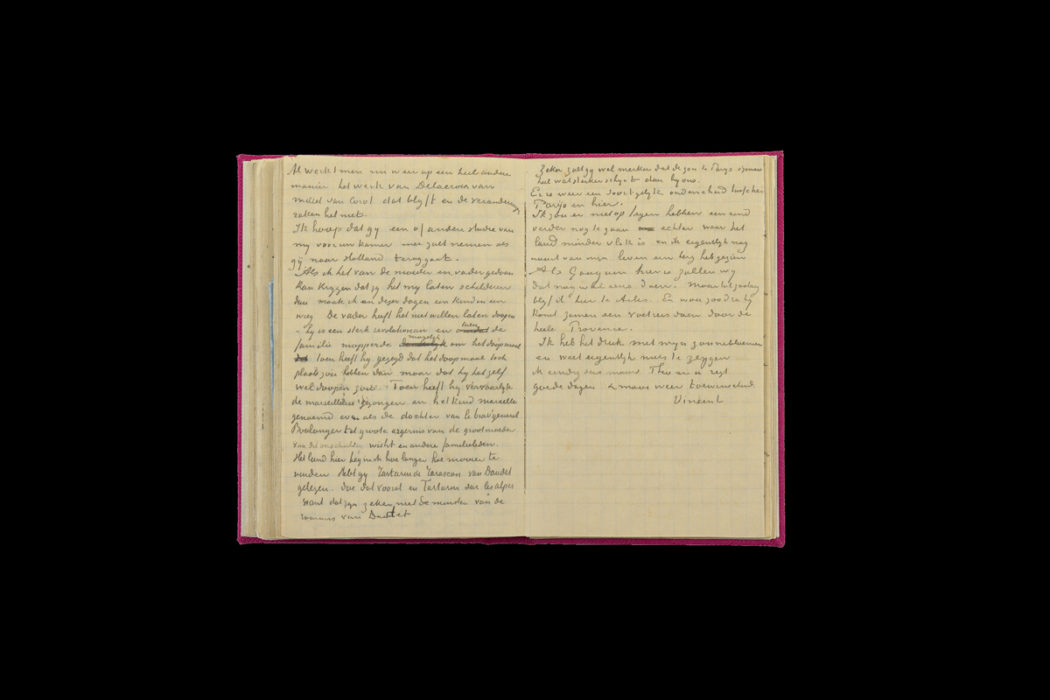 Al werkt men nu weer op een heel andere
manier het werk van Delacroix van
Millet van Corot dat blyft en de veranderingen
raken het niet.
Ik hoop dat gy een of andere studie van
my voor uw kamer mee zult nemen als
gij naar Holland teruggaat.
Als ik het van de moeder en vader gedaan
kan krygen dat zy het my laten schilderen
dan maak ik een dezer dagen een kindje in een
wieg. De vader heeft het niet willen laten doopen
– hy is een sterk revolutionair en toen de
familie mopperde mogelyk om het doopmaal
toen heeft hy gezegd dat het doopmaal toch
plaats zou hebben dan maar dat hy het zelf
wel doopen zou. Toen heeft hy vervaarlyk
de marseillaise gezongen en het kind marcelle
genoemd even als de dochter van le brav' general
Boulanger tot groote ergernis van de grootmoeder
van dit onschuldig wicht en andere familieleden.
Het land hier begin ik hoe langer hoe mooier te
vinden. Hebt gy Tartarin de Tarascon van Daudet
gelezen. Doe dat vooral en Tartarin sur les alpes
want dat zyn zeker niet de minsten van de
romans van Daudet
Zeker zult gy wel merken dat de zon te Parys zomers
heel wat sterker schynt dan by ons.
Er is weer een soortgelyk onderscheid tusschen
Parijs en hier.
Ik zou er niet op tegen hebben een eind
verder nog te gaan echter waar het
land minder vlak is en ik eigenlyk nog
nooit van myn leven een berg heb gezien
Als Gauguin hier is zullen wy
dat nog wel eens doen. Maar tot zoolang
blyf ik hier te Arles. En wou zoodra hy
komt zamen een voetreis doen door de
heele Provence.
Ik heb het druk met myn zonnebloemen
en weet eigenlyk niets te zeggen
ik eindig dus maar Theo en u zegt
goede dagen & maar weer toewenschend
Vincent